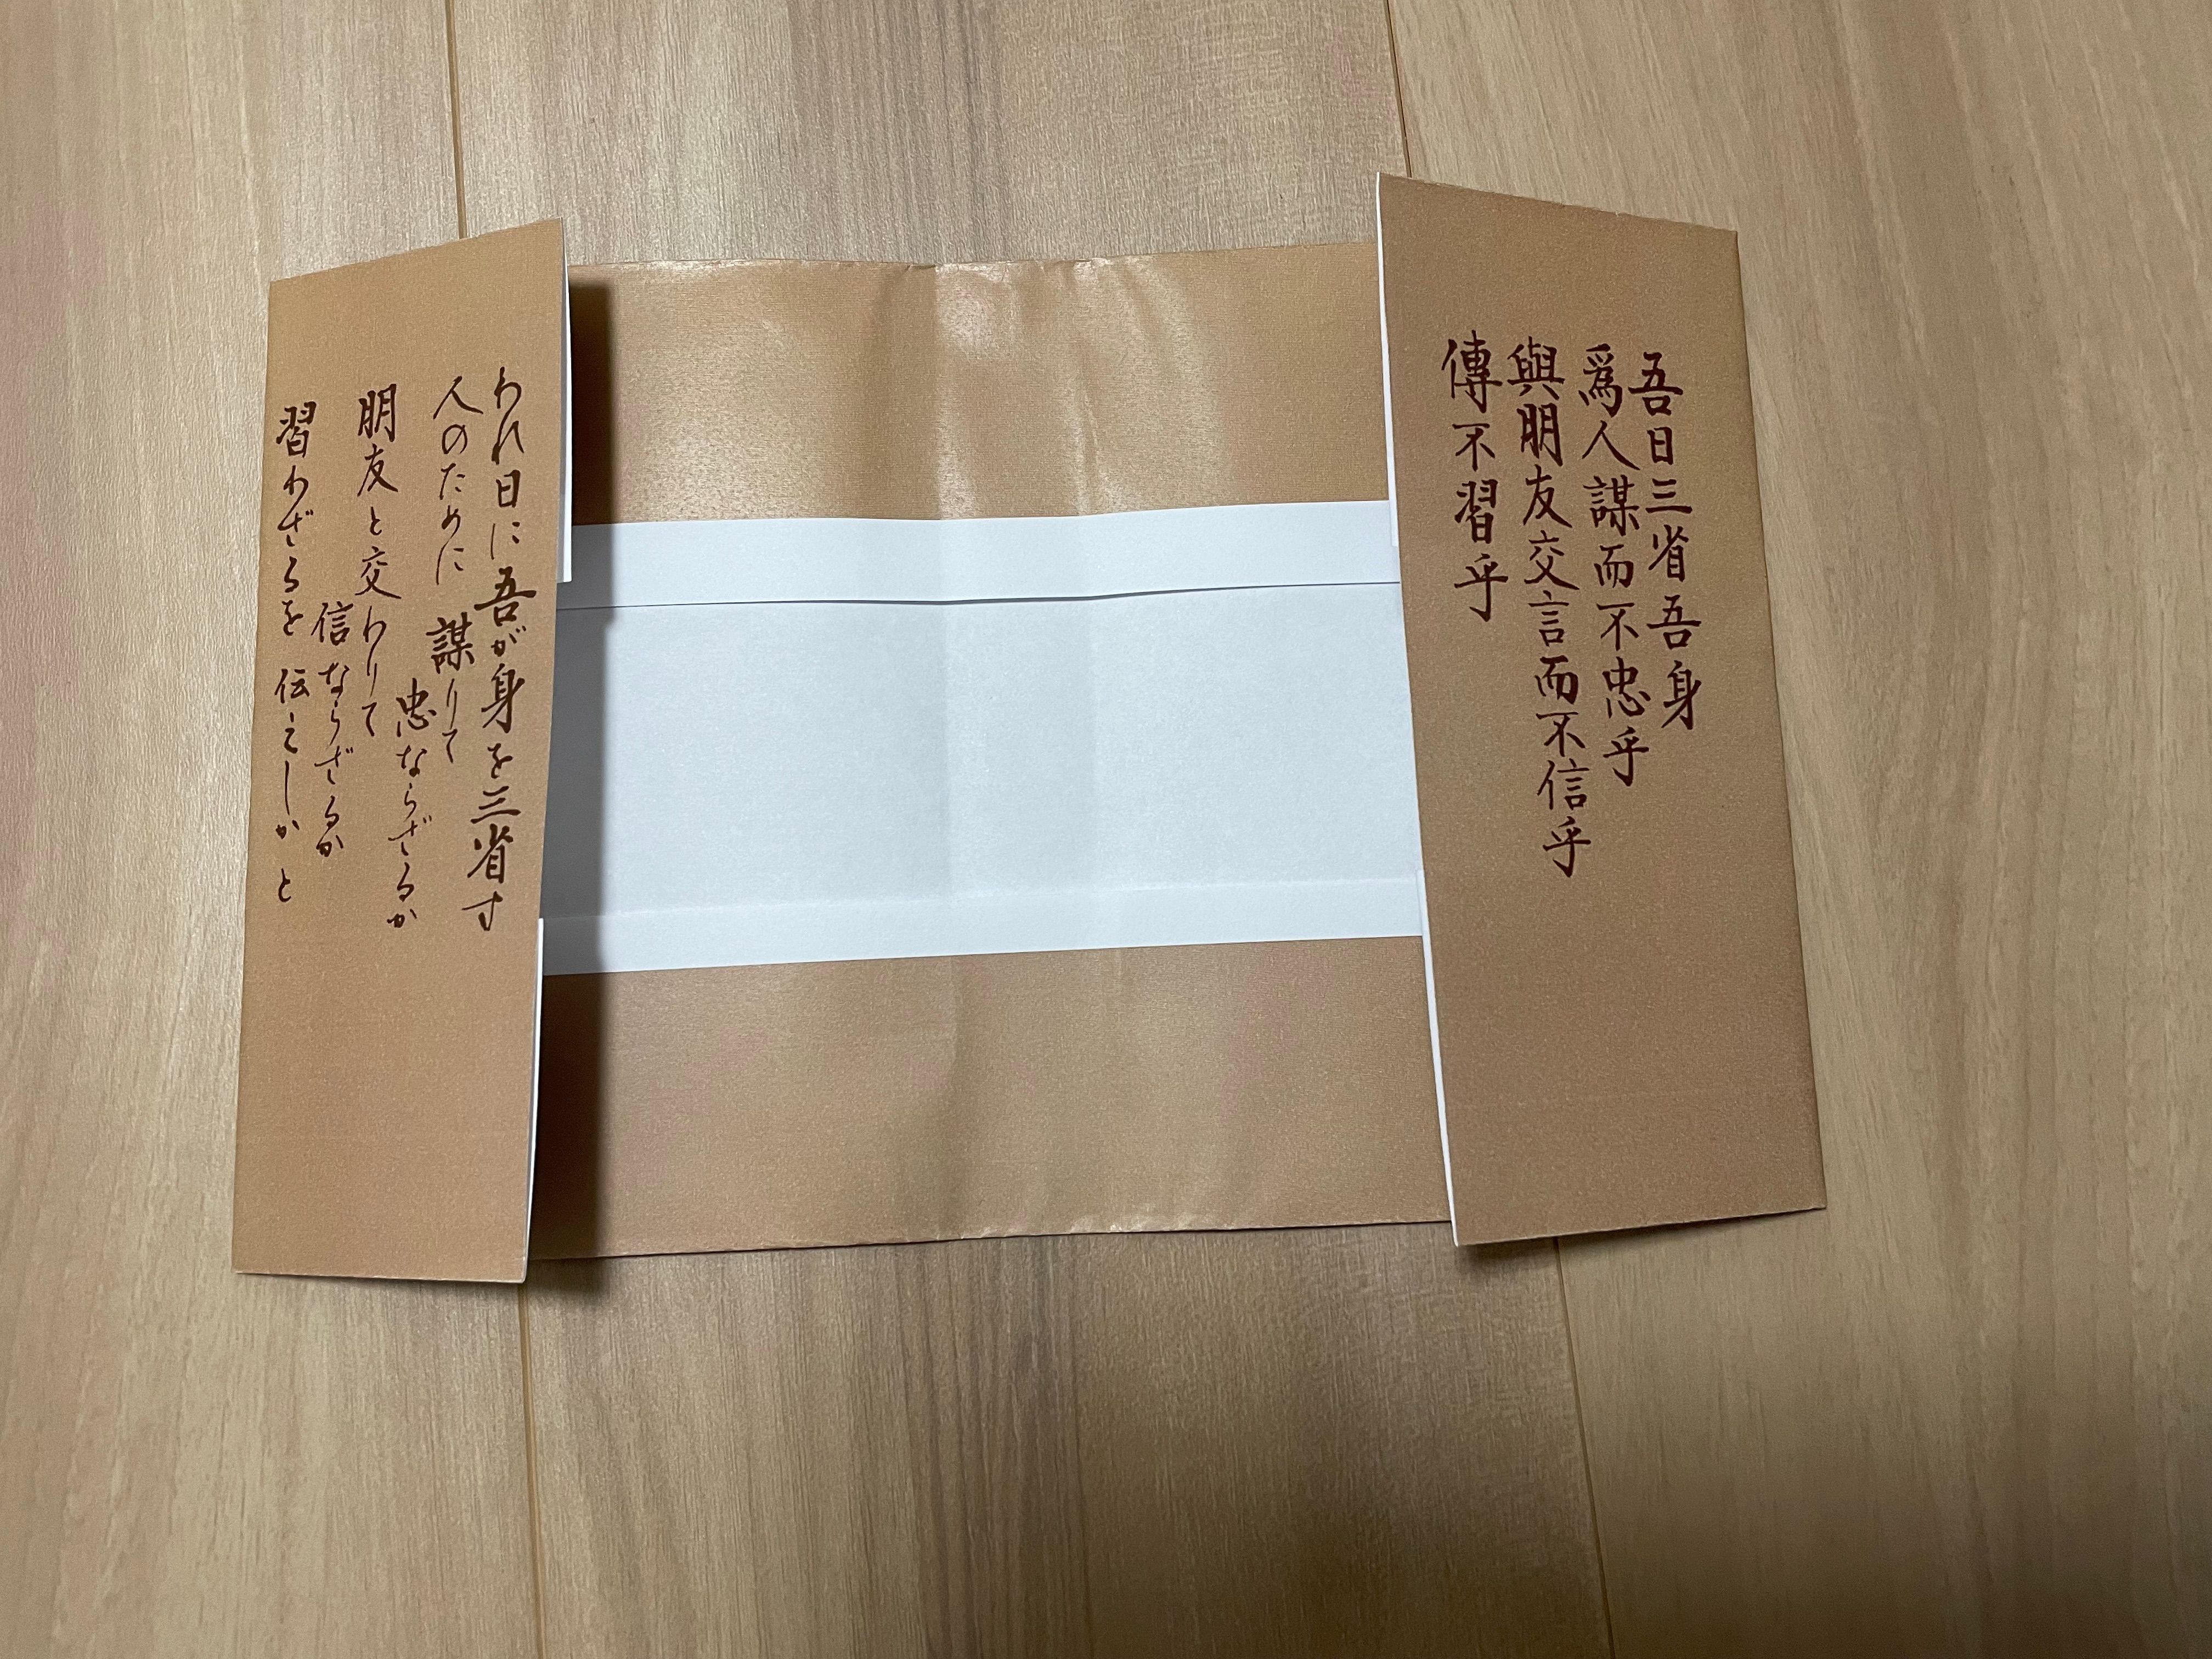 吾日三省吾身
爲人謀而不忠乎
與朋友交言而不信乎
傳不習乎
われ日に吾が身を三省す
人のために謀りて
忠ならざるか
朋友と交わりて
信ならざるか
習わざるを伝えしかと